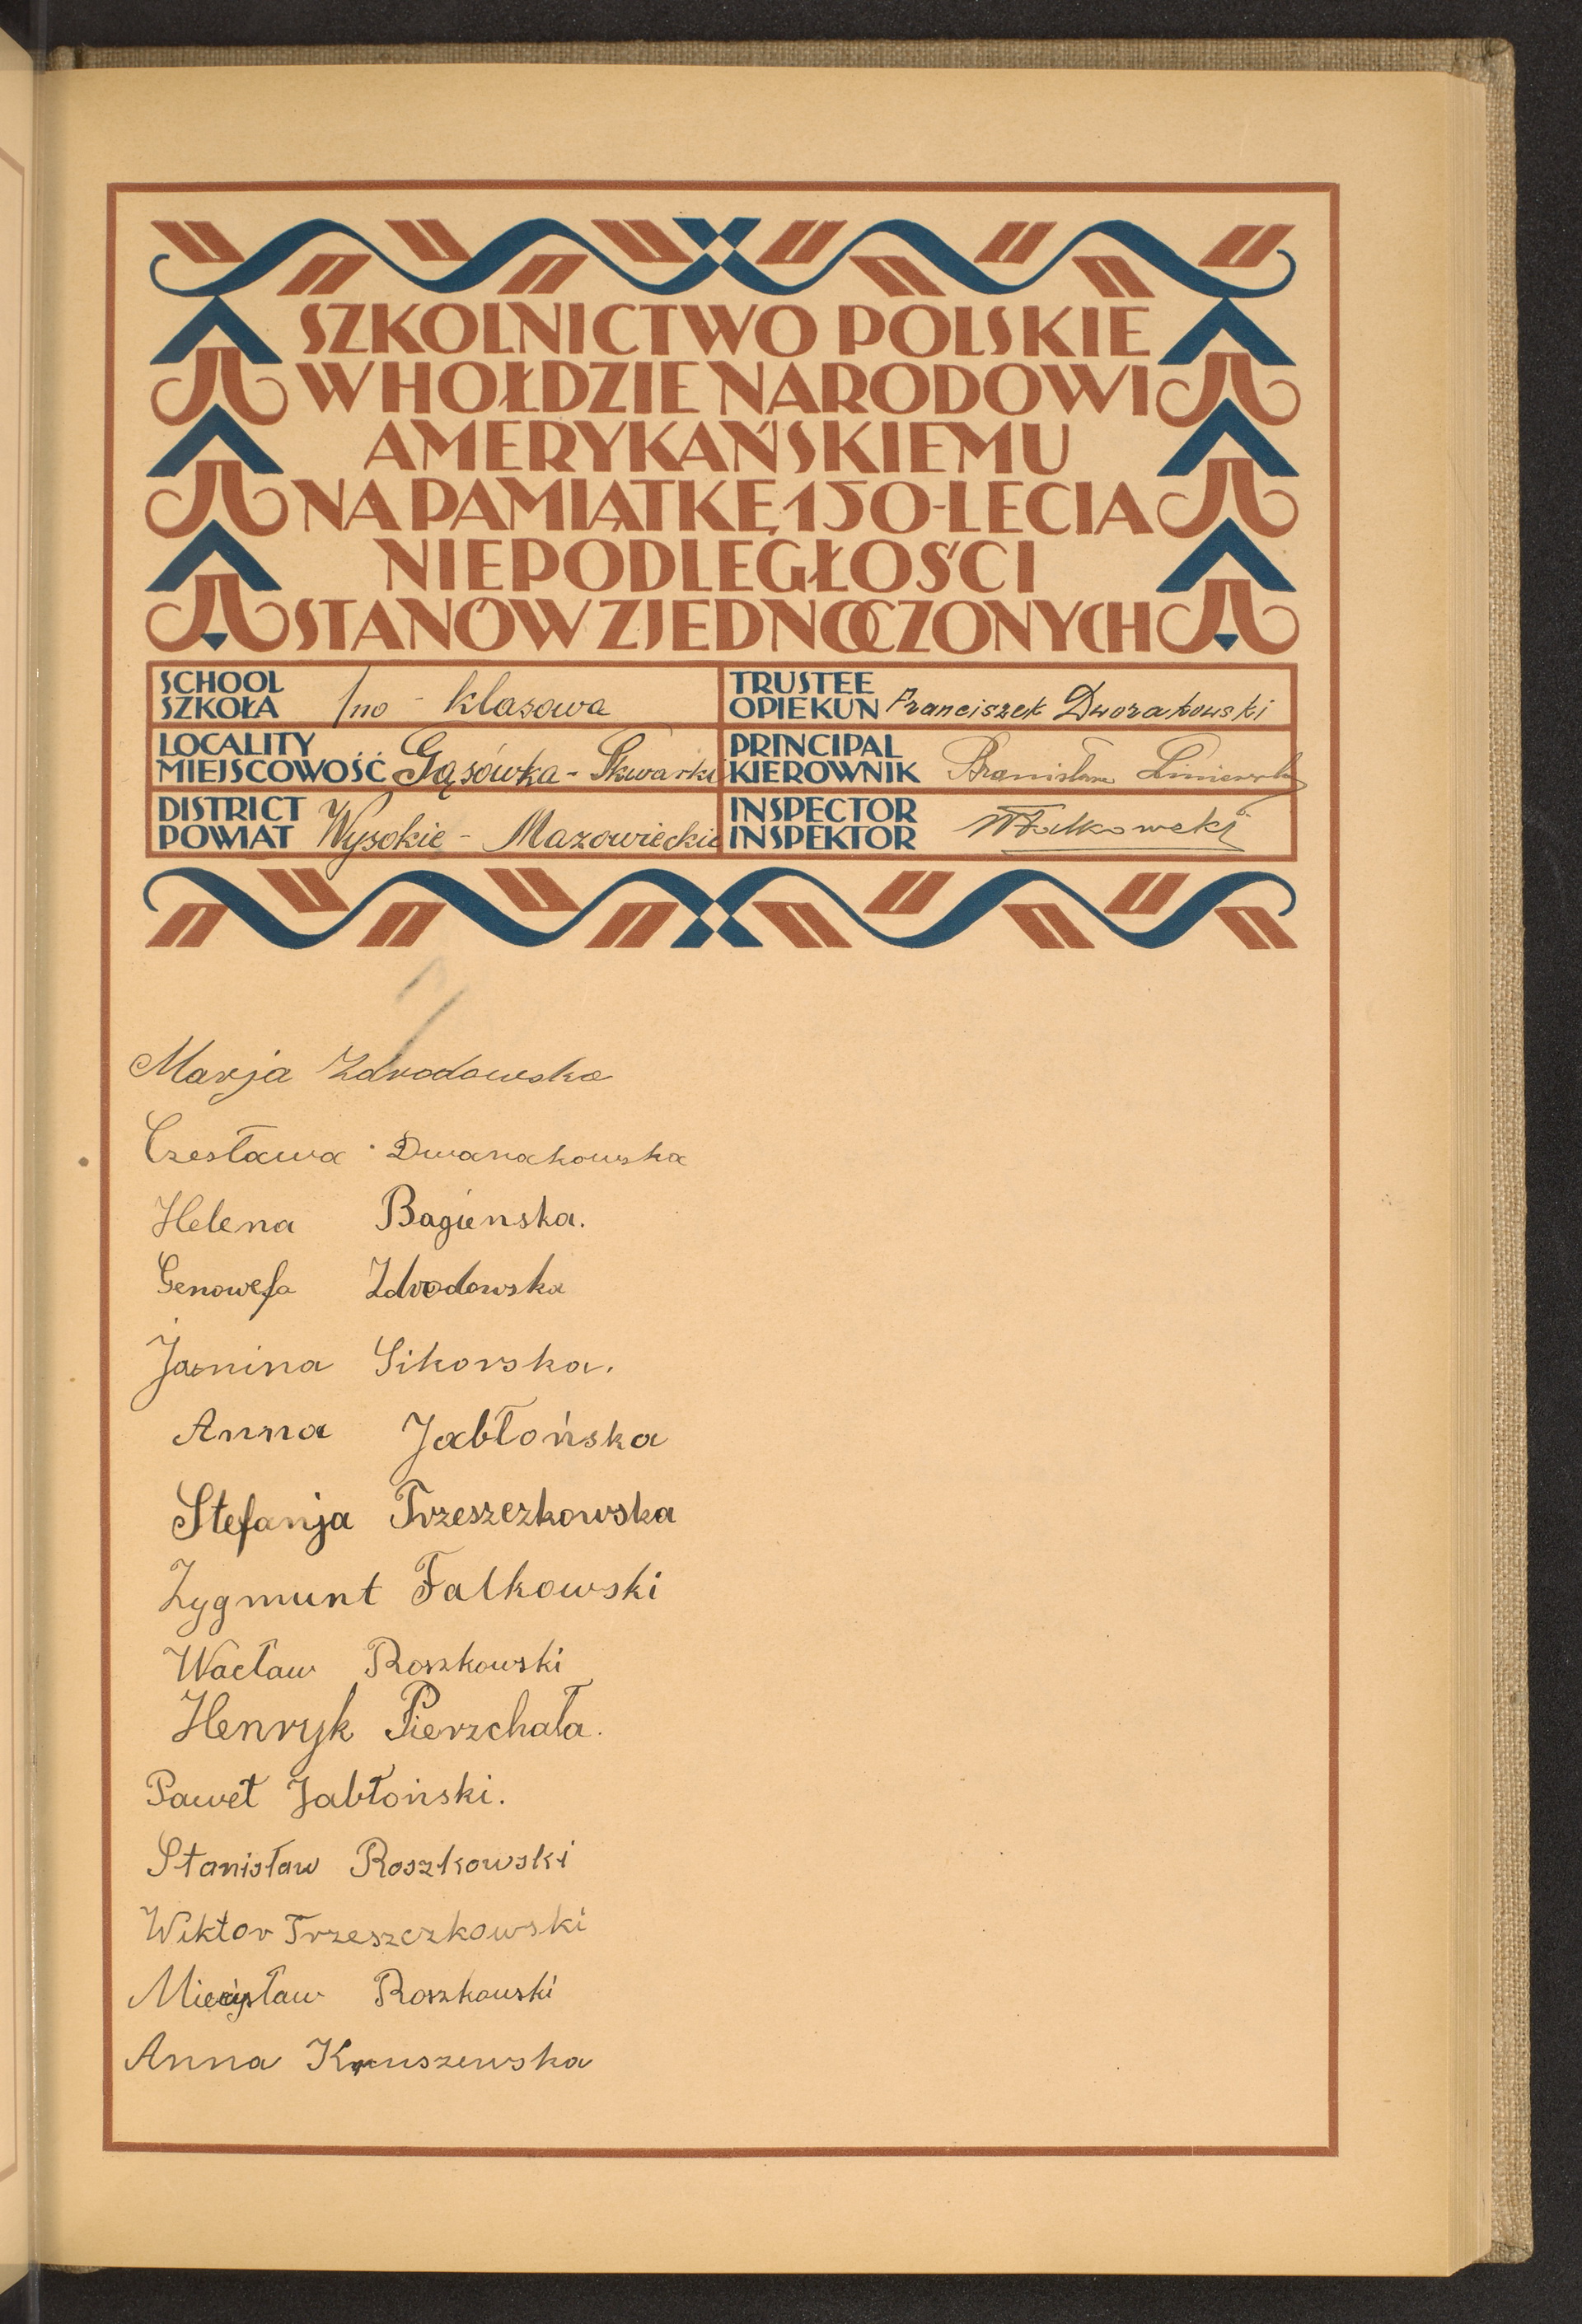 SZKOLNICTWO POLSKIE
W HOŁDZIE NARODOWI
AMERYKAŃSKIEMU
NA PAMIĄTKĘ 150-LECIA
NIEPODLEGŁOŚCI
STANÓW ZJEDNOCZONYCH
SCHOOL
SZKOŁA 1no - klasowa
TRUSTEE
OPIEKUN Franciszek Dworakowski
LOCALITY
MIEJSCOWOŚĆ Gąsówka - Skwarki
PRINCIPAL
KIEROWNIK
DISTRICT
POWIAT Wysokie - Mazowieckie
INSPECTOR
INSPEKTOR
Marja Zdrodowska
Czesława Dwanakowska
Helena Bagienska.
Genowefa Zdrodowska
Janina Sikorska.
Anna Jabłońska
Stefanja Trzeszczkowska
Zygmunt Falkowski
Wacław Roszkowski
Henryk Pierzchała.
Paweł Jabłoński.
Stanisław Roszkowski
Wiktor Trzeszczkowski
Mieczysław Roszkowski
Anna Kruszewska